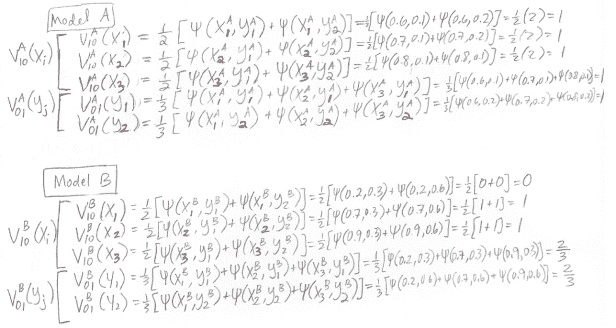 Model A
V₁₀ᴬ(Xᵢ)
V₁₀ᴬ(X₁) = 1/2 [ψ(X₁ᴬ, y₁ᴬ) + ψ(X₁ᴬ, y₂ᴬ)] = 1/2[ψ(0.6,0.1)+ψ(0.6,0.2)] = 1/2(2) = 1
V₁₀ᴬ(X₂) = 1/2 [ψ(X₂ᴬ, y₁ᴬ) + ψ(X₂ᴬ, y₂ᴬ)] = 1/2[ψ(0.7,0.1)+ψ(0.7,0.2)] = 1/2(2) = 1
V₁₀ᴬ(X₃) = 1/2 [ψ(X₃ᴬ, y₁ᴬ) + ψ(X₃ᴬ, y₂ᴬ)] = 1/2[ψ(0.8,0.1)+ψ(0.8,0.1)] = 1/2(2) = 1
V₀₁ᴬ(yⱼ)
V₀₁ᴬ(y₁) = 1/3 [ψ(X₁ᴬ, y₁ᴬ) + ψ(X₂ᴬ, y₁ᴬ) + ψ(X₃ᴬ, y₁ᴬ)] = 1/3[ψ(0.6,0.1)+ψ(0.7,0.1)+ψ(0.8,0.1)] = 1
V₀₁ᴬ(y₂) = 1/3 [ψ(X₁ᴬ, y₂ᴬ) + ψ(X₂ᴬ, y₂ᴬ) + ψ(X₃ᴬ, y₂ᴬ)] = 1/3[ψ(0.6,0.2)+ψ(0.7,0.2)+ψ(0.8,0.2)] = 1
Model B
V₁₀ᴮ(Xᵢ)
V₁₀ᴮ(X₁) = 1/2 [ψ(X₁ᴮ, y₁ᴮ) + ψ(X₁ᴮ, y₂ᴮ)] = 1/2[ψ(0.2,0.3)+ψ(0.2,0.6)] = 1/2[0+0] = 0
V₁₀ᴮ(X₂) = 1/2 [ψ(X₂ᴮ, y₁ᴮ) + ψ(X₂ᴮ, y₂ᴮ)] = 1/2[ψ(0.7,0.3)+ψ(0.7,0.6)] = 1/2[1+1] = 1
V₁₀ᴮ(X₃) = 1/2 [ψ(X₃ᴮ, y₁ᴮ) + ψ(X₃ᴮ, y₂ᴮ)] = 1/2[ψ(0.9,0.3)+ψ(0.9,0.6)] = 1/2[1+1] = 1
V₀₁ᴮ(yⱼ)
V₀₁ᴮ(y₁) = 1/3 [ψ(X₁ᴮ, y₁ᴮ) + ψ(X₂ᴮ, y₁ᴮ) + ψ(X₃ᴮ, y₁ᴮ)] = 1/3[ψ(0.2,0.3)+ψ(0.7,0.3)+ψ(0.9,0.3)] = 2/3
V₀₁ᴮ(y₂) = 1/3 [ψ(X₁ᴮ, y₂ᴮ) + ψ(X₂ᴮ, y₂ᴮ) + ψ(X₃ᴮ, y₂ᴮ)] = 1/3[ψ(0.2,0.6)+ψ(0.7,0.6)+ψ(0.9,0.6)] = 2/3